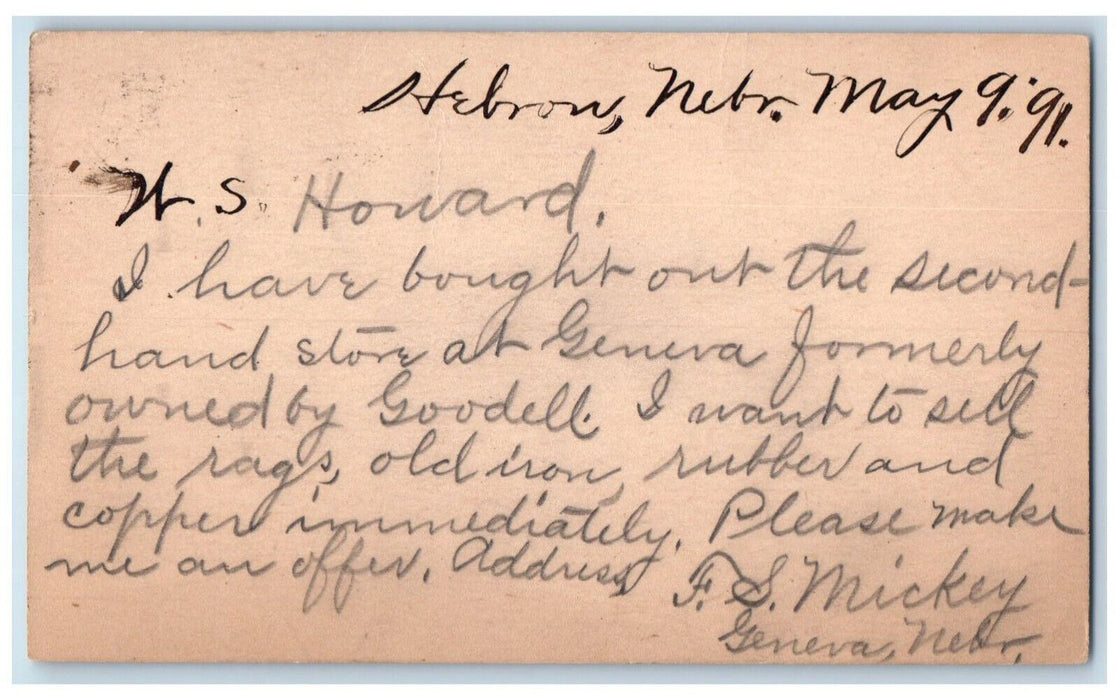 Hebron, Nebr. May 9. '91.
W. S. Howard.
I have bought out the second-
hand store at Geneva formerly
owned by Goodell. I want to sell
the rags, old iron, rubber and
copper immediately. Please make
me an offer. Address,
F. S. Mickey
Geneva, Nebr.